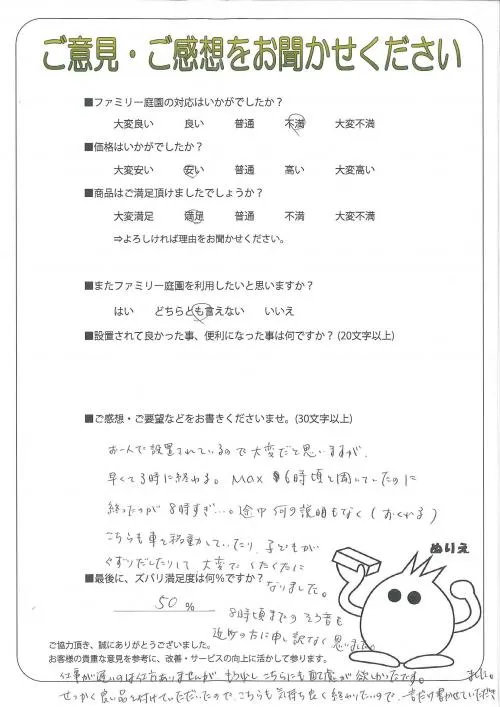 ご意見・ご感想をお聞かせください
■ファミリー庭園の対応はいかがでしたか？
大変良い 良い 普通 不満 大変不満
■価格はいかがでしたか？
大変安い 安い 普通 高い 大変高い
■商品はご満足頂けましたでしょうか？
大変満足 満足 普通 不満 大変不満
⇒よろしければ理由をお聞かせください。
■またファミリー庭園を利用したいと思いますか？
はい どちらとも言えない いいえ
■設置されて良かった事、便利になった事は何ですか？(20文字以上)
■ご感想・ご要望などをお書きくださいませ。(30文字以上)
お一人で設置されているので大変だと思いますが、
早くて3時に終わる。MAX 6時頃と聞いていたのに
終ったのが8時すぎ…。途中何の説明もなく(おくれる)
こちらも車を移動していたり、子どもが
ぐずりだしたりして、大変でくたくたに
なりました。
ぬりえ
■最後に、ズバリ満足度は何%ですか？
50 %
8時頃までの そう音も
近所の方に申し訳なく思いました。
ご協力頂き、誠にありがとうございました。
お客様の貴重な意見を参考に、改善・サービスの向上に活かして参ります。
仕事が遅いのは仕方ありませんが もう少しこちらにも配慮が欲しかったです。
せっかく良い品を付けていただいたので、こちらも気持ち良く終わりたいので、一言だけ書かせていただき
ました。